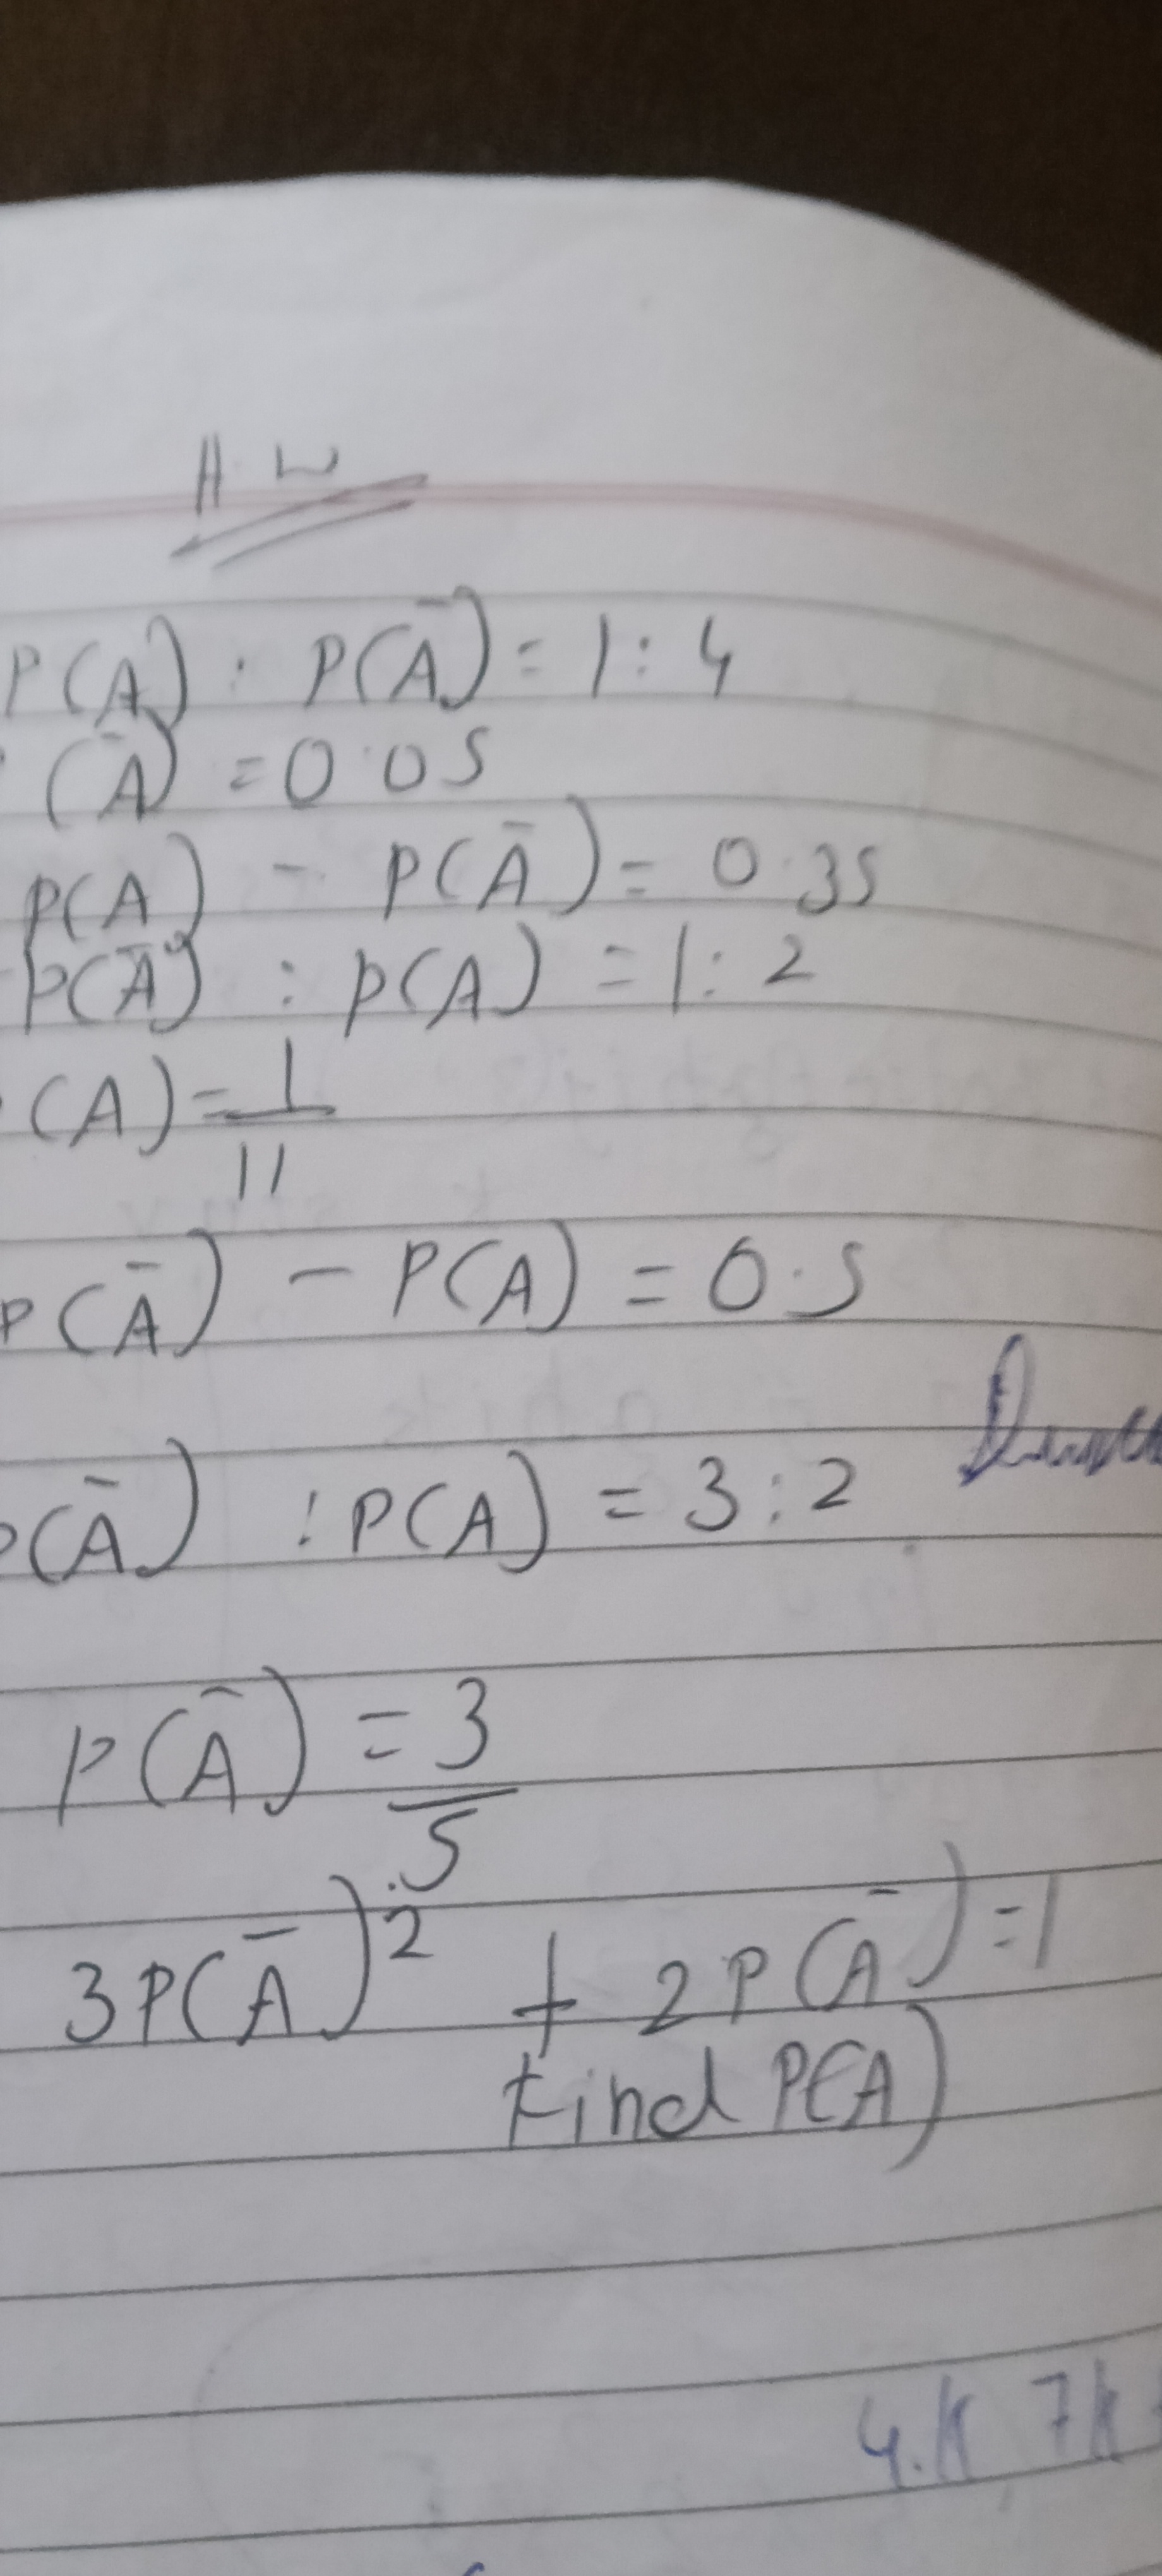 H.W
P(A) : P(Ā) = 1 : 4
(Ā) = 0.05
P(A) - P(Ā) = 0.35
P(Ā) : P(A) = 1 : 2
(A) = 1/11
P(Ā) - P(A) = 0.5
P(Ā) : P(A) = 3 : 2
P(Ā) = 3/5
3P(Ā)² + 2P(Ā) = 1
Find P(A)
4.k 7k